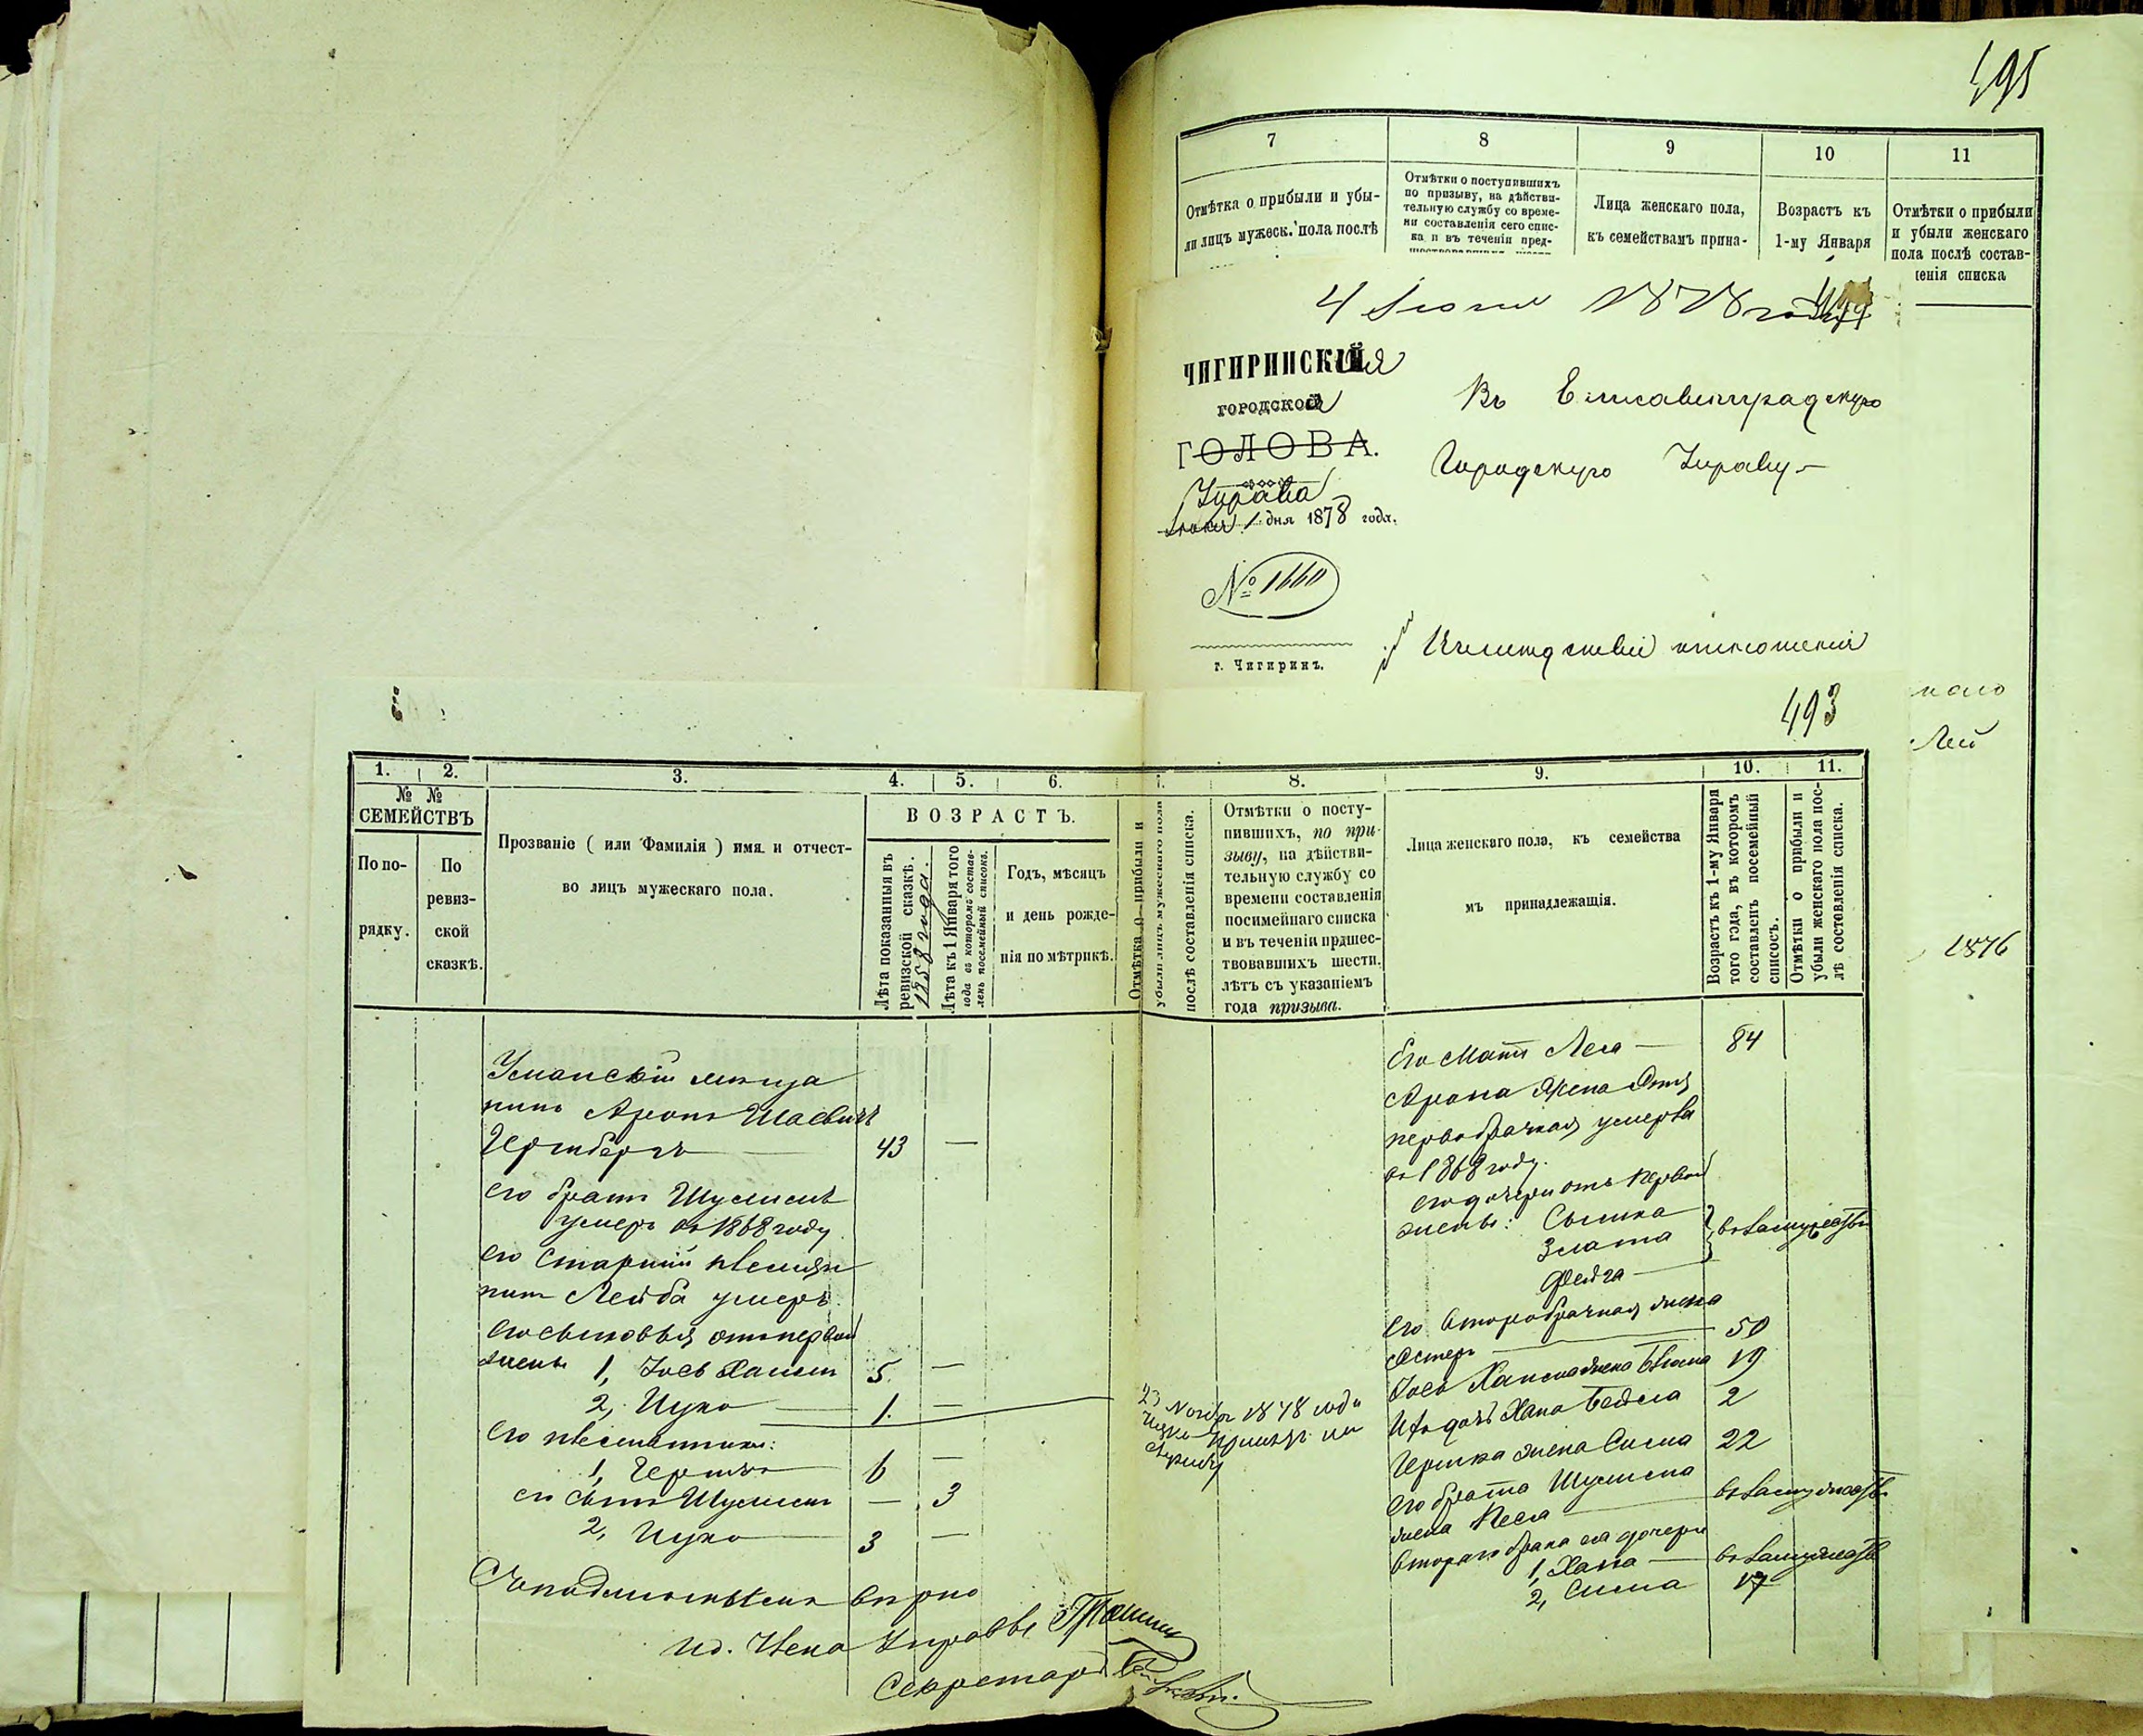 495
7
8
9
10
11
Отмѣтка о прибыли и убы-
ли лицъ мужеск. пола послѣ
Отмѣтки о поступившихъ
по призыву, на дѣйстви-
тельную службу со време-
ни составленія сего спис-
ка и въ теченіи пред-
Лица женскаго пола,
къ семействамъ прина-
Возрастъ къ
1-му Января
Отмѣтки о прибыли
и убыли женскаго
пола послѣ состав-
ленія списка
4 Іюня 1878 года
ЧИГИРИНСКАЯ
ГОРОДСКАЯ
ГОЛОВА.
Управа
Іюня 1 дня 1878 года.
№ 1660
г. Чигиринъ.
Въ Елисаветградскую
Городскую Управу
Лей
1876
493
1.
2.
3.
4.
5.
6.
7.
8.
9.
10.
11.
№ №
СЕМЕЙСТВЪ
По по-
рядку.
По
ревиз-
ской
сказкѣ.
Прозваніе ( или Фамилія ) имя и отчест-
во лицъ мужескаго пола.
ВОЗРАСТЪ.
Лѣта показанныя въ
ревизской сказкѣ.
1858 года.
Лѣта къ 1 Января того
года въ которомъ состав-
ленъ посемейный списокъ.
Годъ, мѣсяцъ
и день рожде-
нія по мѣтрикѣ.
Отмѣтка о прибыли и
убыли лицъ мужескаго пола
послѣ составленія списка.
Отмѣтки о посту-
пившихъ, по при-
зыву, на дѣйстви-
тельную службу со
времени составленія
посимейнаго списка
и въ теченіи прдшес-
твовавшихъ шести.
лѣтъ съ указаніемъ
года призыва.
Лица женскаго пола, къ семейства
мъ принадлежащія.
Возрастъ къ 1-му Января
того гэда, въ которомъ
составленъ посемейный
списосъ.
Отмѣтки о прибыли и
убыли женскаго пола пос-
лѣ состовленія списка.
Уманскій мѣща
нинъ Аронъ Шаевичъ
Герштбергъ 43 —
его братъ Шулимъ
умеръ въ 1868 году
его старшій племян
никъ Лейба умеръ.
его сыновья отъ первой
жены 1, Іось Хаимъ 5. —
2, Ицко 1. —
его племянники:
1, Гершко 6 —
его сынъ Шулимъ — 3
2, Ицко 3 —
23 Ноябр 1878 года
Ицко принятъ на
службу
Его мать Леа — 84
Арона жена
первобрачная умерла
въ 1868 году.
его дочери отъ первой
жены: Сымка
Злата
Фейга
въ замужествѣ
его второбрачная жена
Эстеръ 50
Іося Хаима жена 19
Ихъ дочь Хана Бейла 2
Гершка жена Сима 22
его брата Шулима
жена Песа — въ замужествѣ
втораго брака его дочери
1, Хана — въ замужествѣ
2, Сима 17
Съ подлиннымъ вѣрно
Ид. Члена Управы
Секретарь